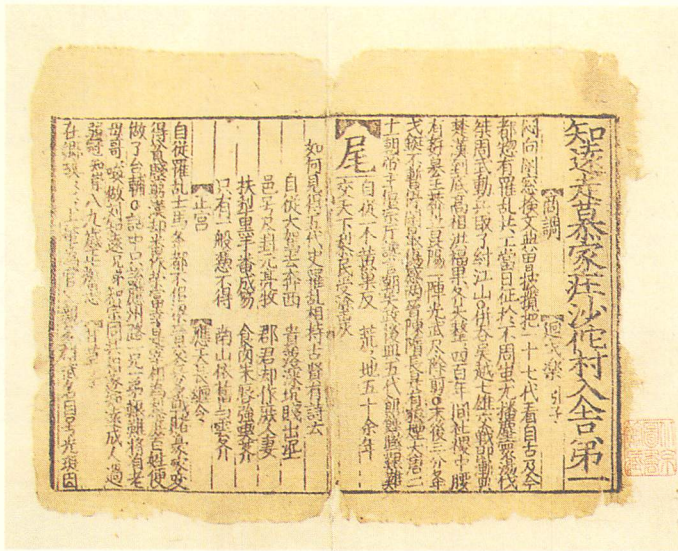 知遠走慕家莊沙佗村入舍第一
【商調】 迴戈樂 引子
悶向閑窓檢文典曾披攬把一十七代看自古及今
都總有罹乱共工當日征於不周蚩尤播塵寰湯伐
桀周武動兵取了紂江山○併合吳越七雄交戰即漸興
楚漢到底高祖洪福果齊天整整四百年間社稷中腰
有奸篡王莽立昆陽一陣光武尽除剪○末後三分舉
戈鋋不暫停閑最傷感兩晉陳隋長是有狼煙大唐二
十一朝帝主僖宗聽讒言朝失政後興五代飢饉煎熬艱難
【尾】自從一本黃巢反 荒〻地五十餘年
交天下黎民受塗炭
如何見得五代史罹乱相持古賢有詩云
自從大駕去奔西 貴落深坑賤出泥
邑号尽封元亮牧 郡君却作庶人妻
扶犁黑手番成笏 食肉朱脣強喫虀
只有一般憑不得 南山依舊与雲齊
【正宮】 應天長纏令
自從罹乱士馬舉都不似梁晉交馬多戰賭豪家變
得貧賤窮漢却番作榮富幸是宰相為黎庶百姓便
做了台輔○話中只說應州路一兄弟艱難將自老
母哥喚做刘知遠兄弟知崇同共相逐知遠成人過
知崇八九歲正痴愚
在鄉故 上輩為官父親多雄武名目号光珽因